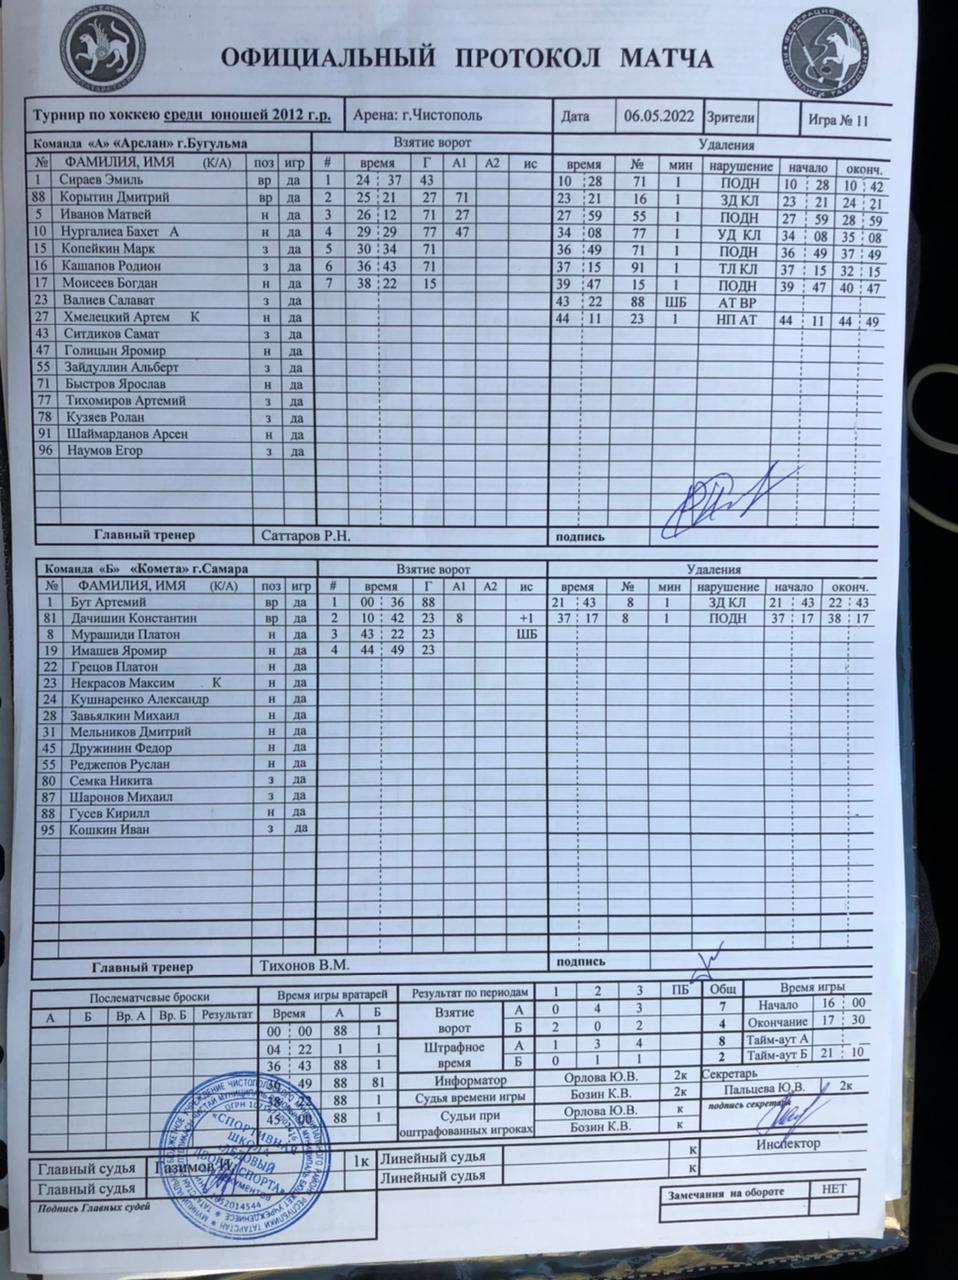 ОФИЦИАЛЬНЫЙ ПРОТОКОЛ МАТЧА
Турнир по хоккею среди юношей 2012 г.р. Арена: г.Чистополь Дата 06.05.2022 Зрители Игра № 11
Команда «А» «Арслан» г.Бугульма Взятие ворот Удаления
№ ФАМИЛИЯ, ИМЯ (К/А) поз игр # время Г А1 А2 ис время № мин нарушение начало оконч.
1 Сираев Эмиль вр да 1 24 37 43 10 28 71 1 ПОДН 10 28 10 42
88 Корытин Дмитрий вр да 2 25 21 27 71 23 21 16 1 ЗД КЛ 23 21 24 21
5 Иванов Матвей н да 3 26 12 71 27 27 59 55 1 ПОДН 27 59 28 59
10 Нургалиева Бахет А н да 4 29 29 77 47 34 08 77 1 УД КЛ 34 08 35 08
15 Копейкин Марк з да 5 30 34 71 36 49 71 1 ПОДН 36 49 37 49
16 Кашапов Родион з да 6 36 43 71 37 15 91 1 ТЛ КЛ 37 15 32 15
17 Моисеев Богдан н да 7 38 22 15 39 47 15 1 ПОДН 39 47 40 47
23 Валиев Салават з да 43 22 88 ШБ АТ ВР
27 Хмелецкий Артем К н да 44 11 23 1 НП АТ 44 11 44 49
43 Ситдиков Самат з да
47 Голицын Яромир н да
55 Зайдуллин Альберт з да
71 Быстров Ярослав н да
77 Тихомиров Артемий з да
78 Кузяев Ролан з да
91 Шаймарданов Арсен н да
96 Наумов Егор з да
Главный тренер Саттаров Р.Н. подпись
Команда «Б» «Комета» г.Самара Взятие ворот Удаления
№ ФАМИЛИЯ, ИМЯ (К/А) поз игр # время Г А1 А2 ис время № мин нарушение начало оконч.
1 Бут Артемий вр да 1 00 36 88 21 43 8 1 ЗД КЛ 21 43 22 43
81 Дачишин Константин вр да 2 10 42 23 8 +1 37 17 8 1 ПОДН 37 17 38 17
8 Мурашиди Платон н да 3 43 22 23 ШБ
19 Имашев Яромир н да 4 44 49 23
22 Грецов Платон н да
23 Некрасов Максим К н да
24 Кушнаренко Александр н да
28 Завьялкин Михаил н да
31 Мельников Дмитрий н да
45 Дружинин Федор н да
55 Реджепов Руслан н да
80 Семка Никита з да
87 Шаронов Михаил з да
88 Гусев Кирилл н да
95 Кошкин Иван з да
Главный тренер Тихонов В.М. подпись
Послематчевые броски Время игры вратарей Результат по периодам 1 2 3 ПБ Общ Время игры
А Б Вр. А Вр. Б Результат Время А Б Взятие ворот А 0 4 3 7 Начало 16 00
00 00 88 1 Б 2 0 2 4 Окончание 17 30
04 22 1 1 Штрафное время А 1 3 4 8 Тайм-аут А
36 43 88 1 Б 0 1 1 2 Тайм-аут Б 21 10
49 88 81 Информатор Орлова Ю.В. 2к Секретарь
88 1 Судья времени игры Бозин К.В. 2к Пальцева Ю.В. 2к
45 00 88 1 Судьи при оштрафованных игроках Орлова Ю.В. к подпись секретаря
Бозин К.В. к
Инспектор
Главный судья Газимов 1к Линейный судья к
Главный судья Линейный судья к
Подпись Главных судей
Замечания на обороте НЕТ
«СПОРТИВНАЯ
ШКОЛА